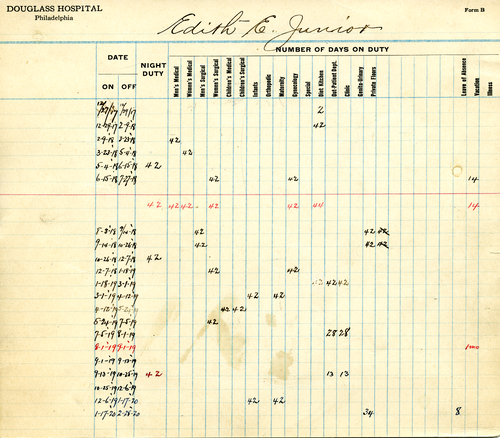 DOUGLASS HOSPITAL
Philadelphia
Form B
Edith E. Junior
NUMBER OF DAYS ON DUTY
DATE NIGHT DUTY Men's Medical Women's Medical Men's Surgical Women's Surgical Children's Medical Children's Surgical Infants Orthopedic Maternity Gynecology Special Diet Kitchen Out-Patient Dept. Clinic Genito-Urinary Private Floors Leave of Absence Vacation Illness
ON OFF
2
12-29-17 2-9-18 42
2-9-18 3-23-18 42
3-23-18 5-4-18 42
5-4-18 6-15-18 42
6-15-18 7-27-18 42 42 14
42 42 42 42 42 44 14
8-3-18 9/14-18 42 42
9-14-18 10-26-18 42 42
10-26-18 12-7-18 42
12-7-18 1-18-19 42 42
1-18-19 3-1-19 42 42
3-1-19 4-12-19 42 42
4-12-19 42 42
5-24-19 7-5-19 42
7-5-19 8-1-19 28 28
8-1-19 9-1-19 1 mo
9-1-19 9-13-19
9-13-19 10-25-19 42 13 13
10-25-19 12-6-19
12-6-19 1-17-20 42 42
1-17-20 2-28-20 34 8